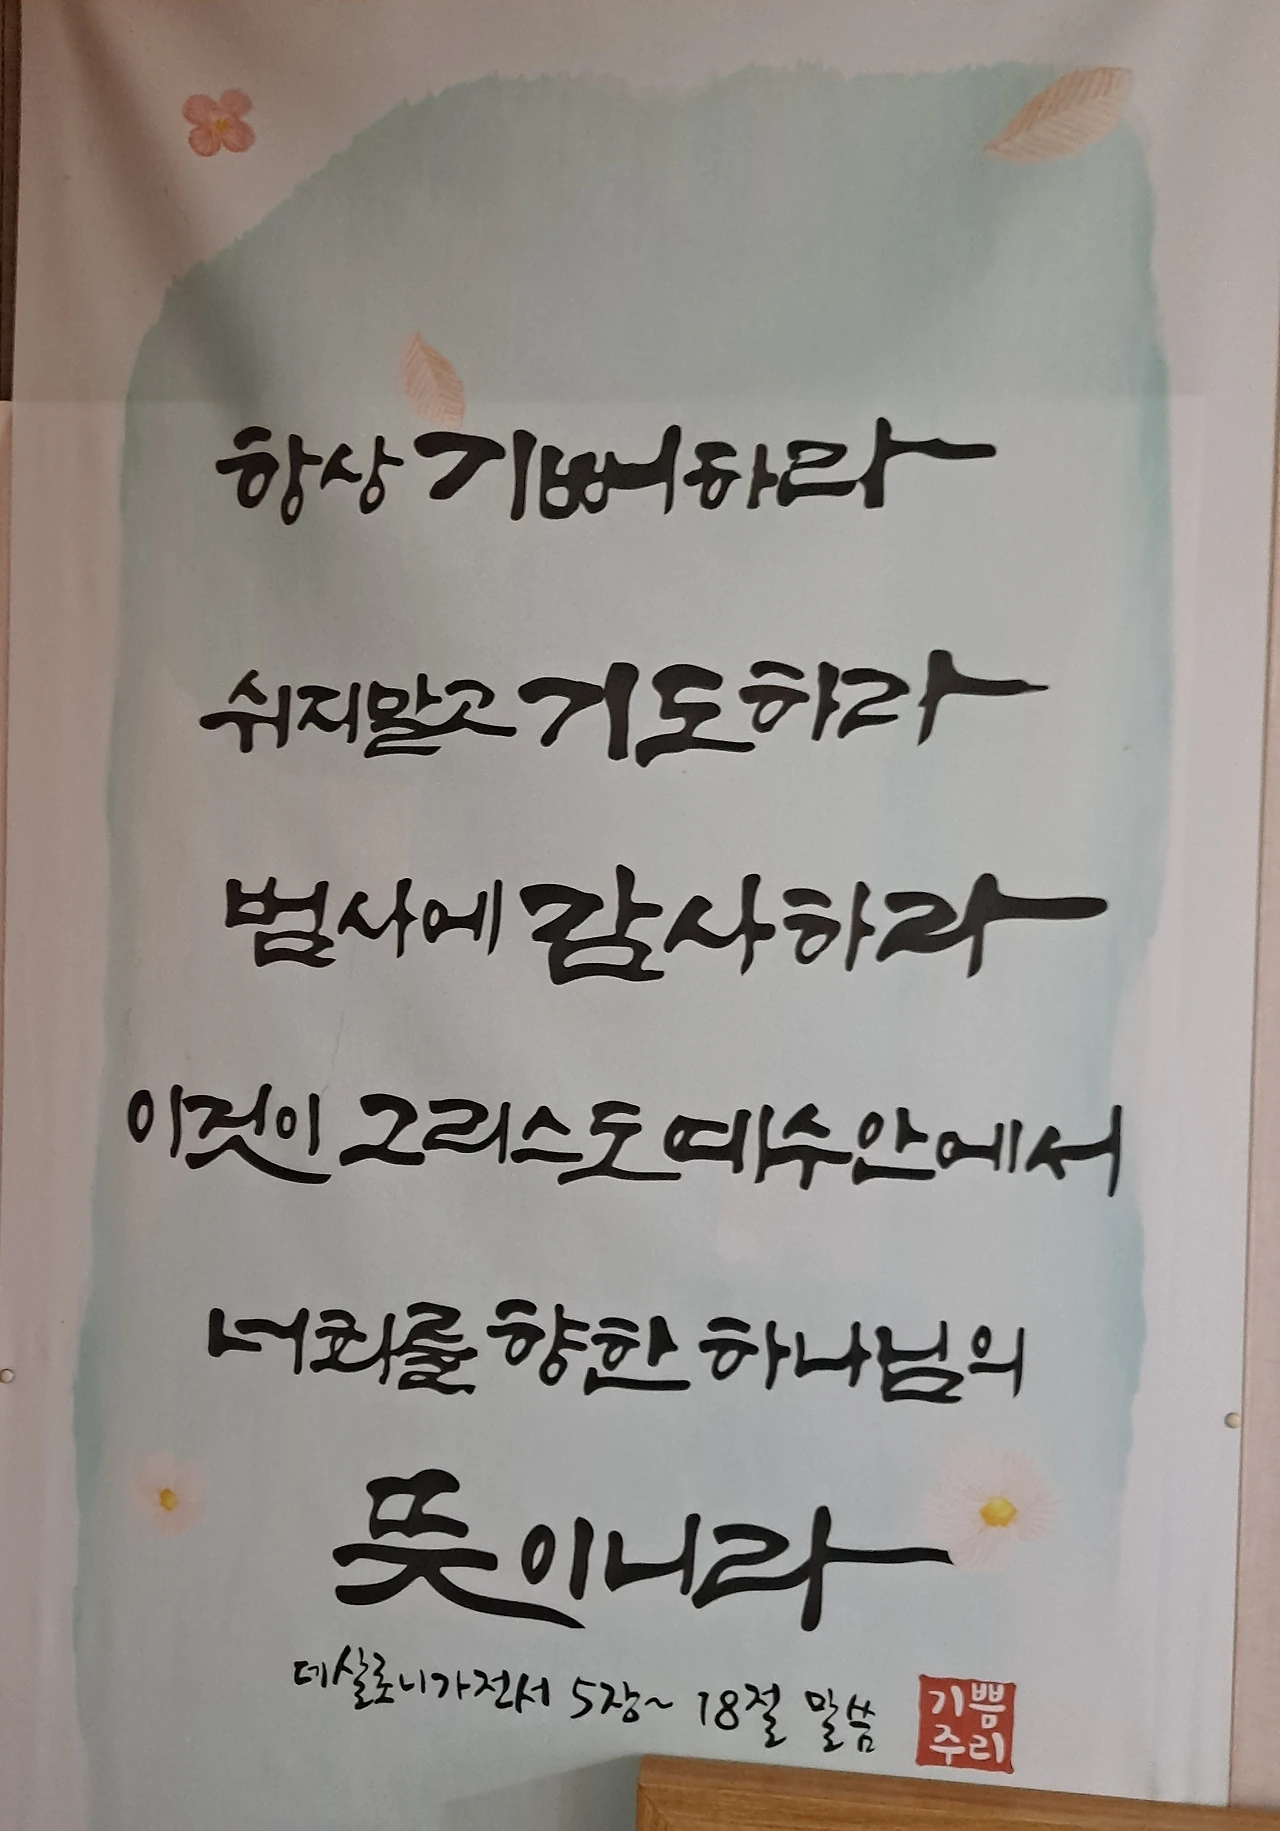 항상 기뻐하라
쉬지말고 기도하라
범사에 감사하라
이것이 그리스도예수안에서
너희를 향한 하나님의
뜻이니라
데살로니가전서 5장~ 18절 말씀
기쁨
주리